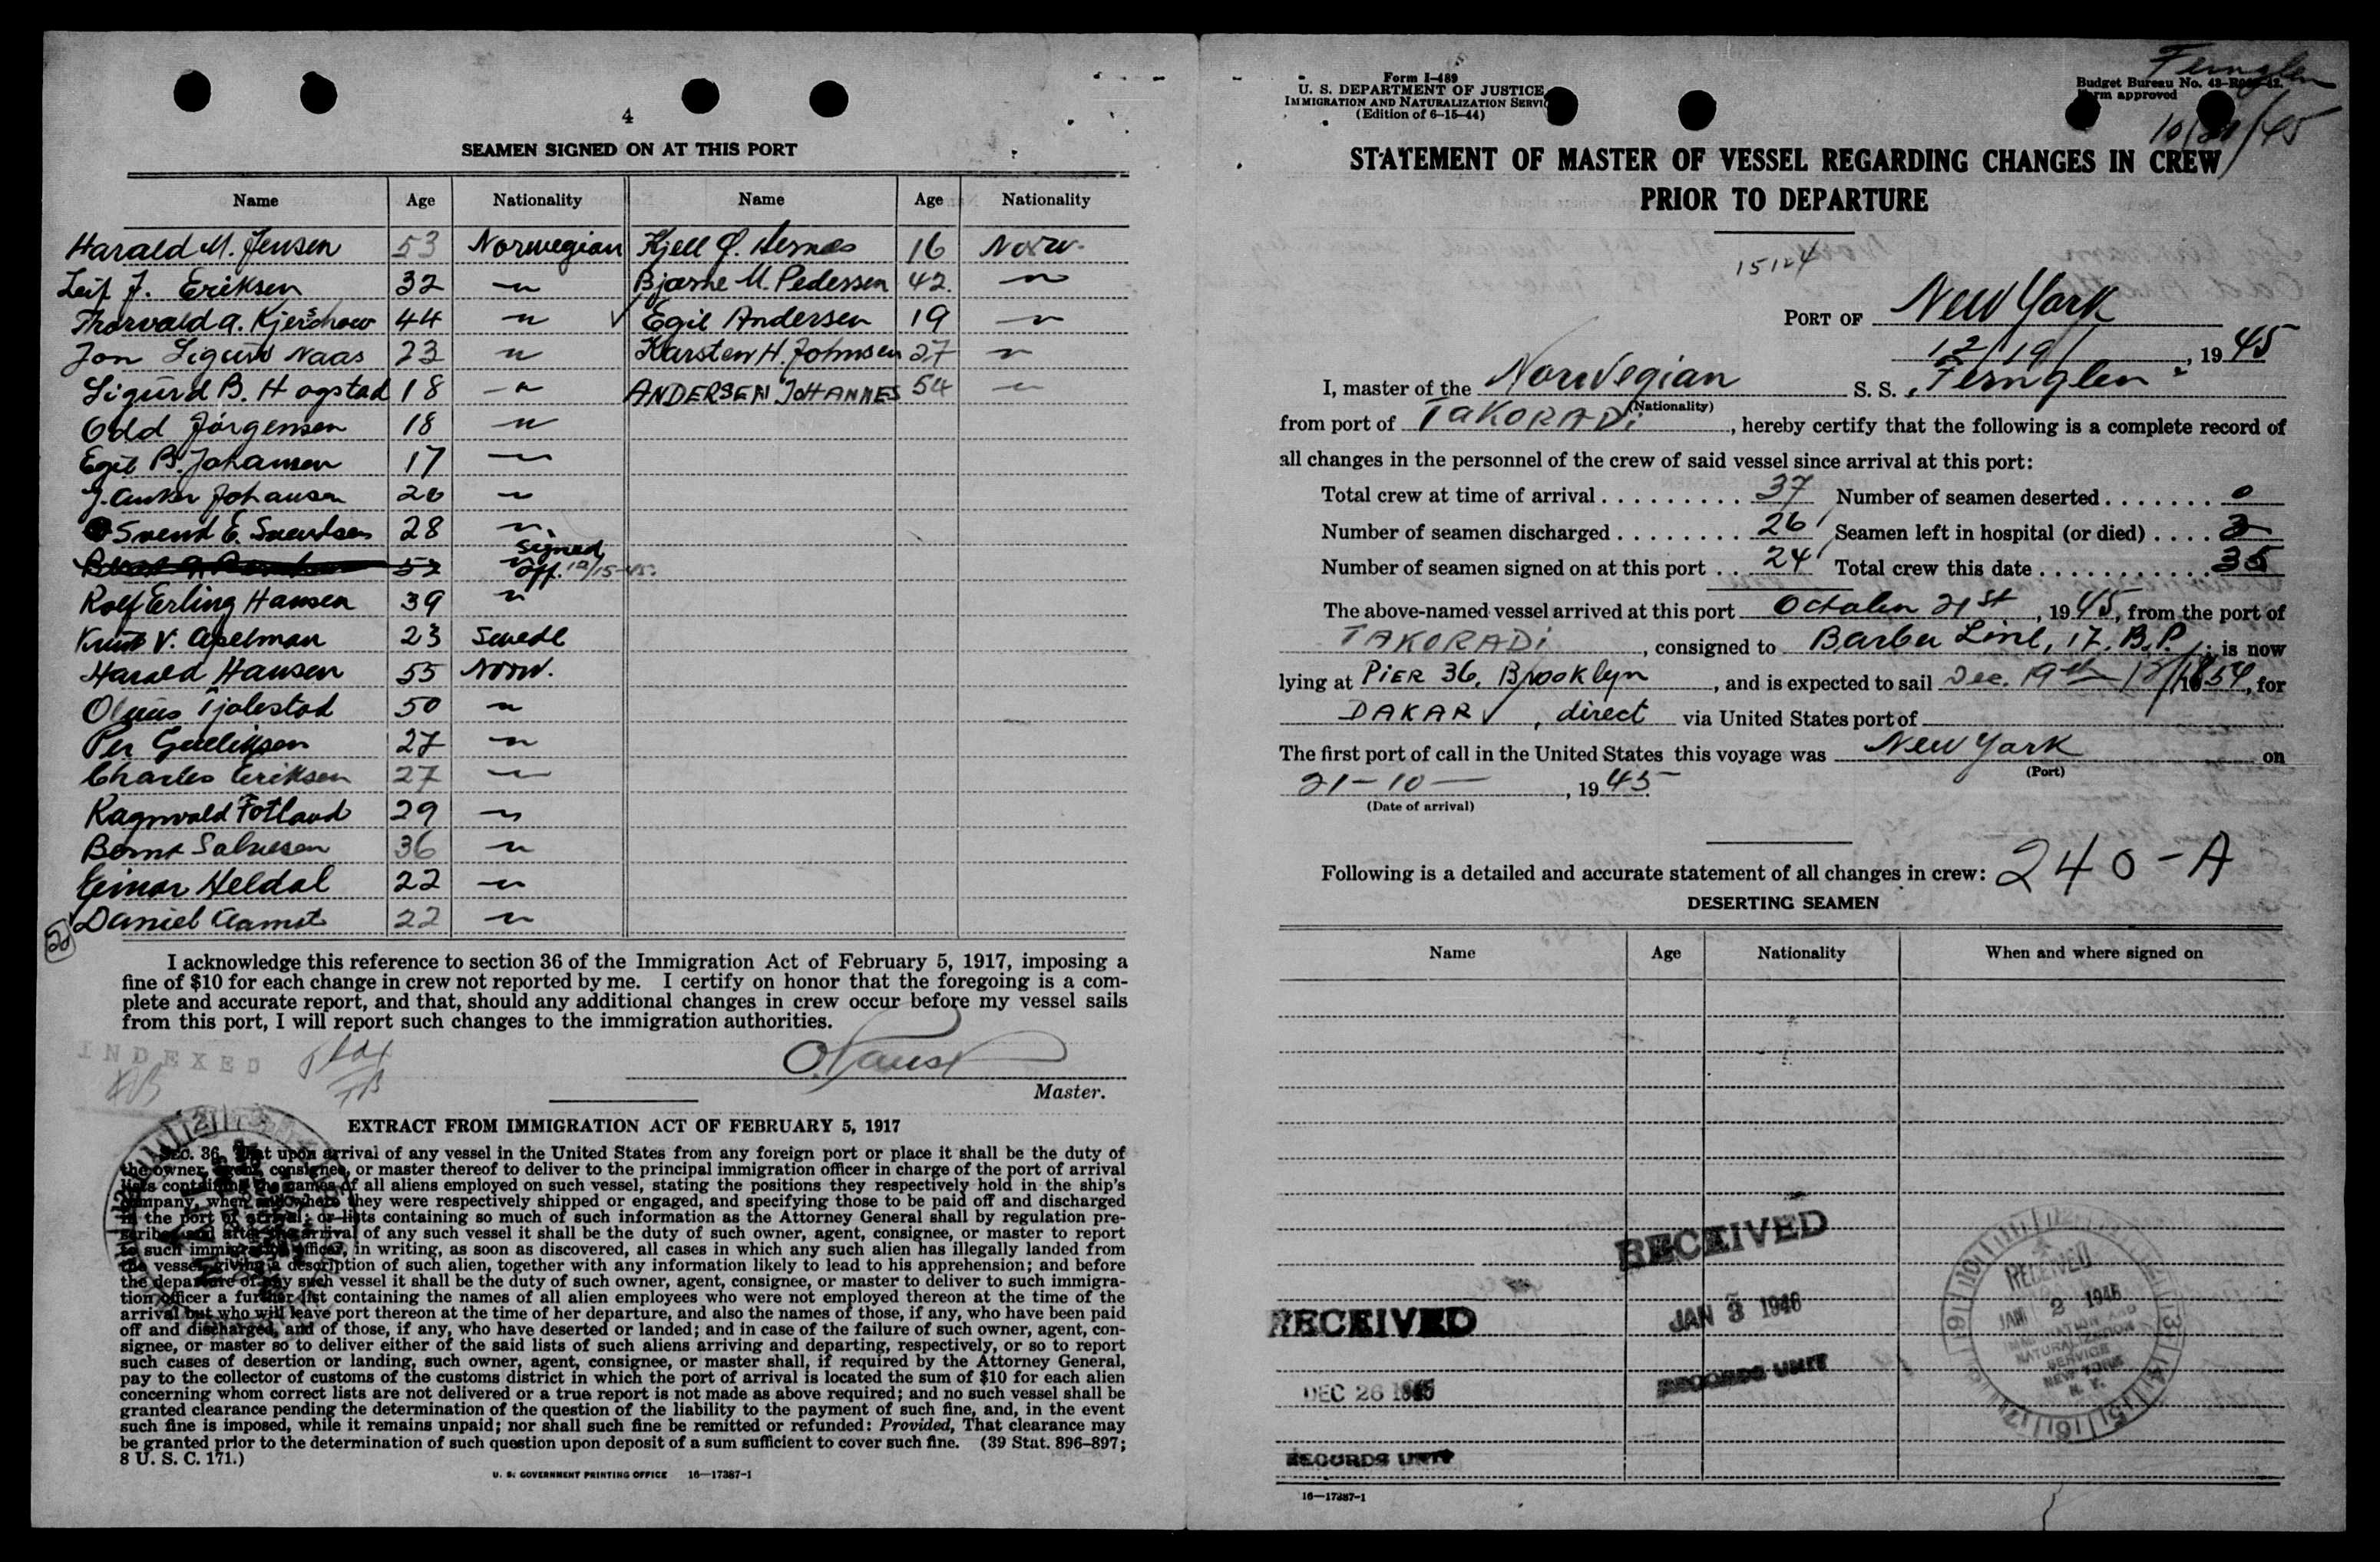 4
SEAMEN SIGNED ON AT THIS PORT
Name Age Nationality Name Age Nationality
Harald M. Jensen 53 Norwegian Kjell J. 16 Norw.
Leif J. Eriksen 32 " Bjarne M. Pedersen 42. "
Thorvald A. Kjerschow 44 " ✓ Egil Andersen 19 "
Jon Sigurd Naas 23 " Karsten H. Johnsen 27 "
Sigurd B. Hogstad 18 " ANDERSEN JOHANNES 54 "
Odd Jørgensen 18 "
Egil B. Johansen 17 "
J. Anker Johansen 20 "
Svend E. Svendsen 28 "
52 " Signed off. 12/15-45.
Rolf Erling Hansen 39 "
Knut V. Apelman 23 Swede
Harald Hansen 55 Norw.
Olaus Tjolestad 50 "
Per Gulliksen 27 "
Charles Eriksen 27 "
Ragnvald Fotland 29 "
Bernt Salvesen 36 "
Einar Heldal 22 "
Daniel Aamot 22 "
I acknowledge this reference to section 36 of the Immigration Act of February 5, 1917, imposing a
fine of $10 for each change in crew not reported by me. I certify on honor that the foregoing is a com-
plete and accurate report, and that, should any additional changes in crew occur before my vessel sails
from this port, I will report such changes to the immigration authorities.
INDEXED
Master.
EXTRACT FROM IMMIGRATION ACT OF FEBRUARY 5, 1917
SEC. 36. That upon arrival of any vessel in the United States from any foreign port or place it shall be the duty of
the owner, agent, consignee, or master thereof to deliver to the principal immigration officer in charge of the port of arrival
lists containing the names of all aliens employed on such vessel, stating the positions they respectively hold in the ship's
company, when and where they were respectively shipped or engaged, and specifying those to be paid off and discharged
in the port of arrival; or lists containing so much of such information as the Attorney General shall by regulation pre-
scribe; and after the arrival of any such vessel it shall be the duty of such owner, agent, consignee, or master to report
to such immigration officer, in writing, as soon as discovered, all cases in which any such alien has illegally landed from
the vessel, giving a description of such alien, together with any information likely to lead to his apprehension; and before
the departure of any such vessel it shall be the duty of such owner, agent, consignee, or master to deliver to such immigra-
tion officer a further list containing the names of all alien employees who were not employed thereon at the time of the
arrival but who will leave port thereon at the time of her departure, and also the names of those, if any, who have been paid
off and discharged, and of those, if any, who have deserted or landed; and in case of the failure of such owner, agent, con-
signee, or master so to deliver either of the said lists of such aliens arriving and departing, respectively, or so to report
such cases of desertion or landing, such owner, agent, consignee, or master shall, if required by the Attorney General,
pay to the collector of customs of the customs district in which the port of arrival is located the sum of $10 for each alien
concerning whom correct lists are not delivered or a true report is not made as above required; and no such vessel shall be
granted clearance pending the determination of the question of the liability to the payment of such fine, and, in the event
such fine is imposed, while it remains unpaid; nor shall such fine be remitted or refunded: Provided, That clearance may
be granted prior to the determination of such question upon deposit of a sum sufficient to cover such fine. (39 Stat. 896–897;
8 U. S. C. 171.)
U. S. GOVERNMENT PRINTING OFFICE 16—17387-1
Form I-489
U. S. DEPARTMENT OF JUSTICE
IMMIGRATION AND NATURALIZATION SERVICE
(Edition of 6-15-44)
Fernglen
Budget Bureau No.
Form approved
STATEMENT OF MASTER OF VESSEL REGARDING CHANGES IN CREW
PRIOR TO DEPARTURE
15124
PORT OF New York
12/19/, 1945
I, master of the Norwegian S. S. Fernglen
(Nationality)
from port of TAKORADI, hereby certify that the following is a complete record of
all changes in the personnel of the crew of said vessel since arrival at this port:
Total crew at time of arrival 37 Number of seamen deserted 0
Number of seamen discharged 26 Seamen left in hospital (or died)
Number of seamen signed on at this port 24 Total crew this date 35
The above-named vessel arrived at this port October 21st, 1945, from the port of
TAKORADI, consigned to Barber Line, 17. B.P.; is now
lying at PIER 36, Brooklyn, and is expected to sail Dec. 19th, for
DAKAR, direct via United States port of
The first port of call in the United States this voyage was New York on
(Port)
21-10-, 1945
(Date of arrival)
Following is a detailed and accurate statement of all changes in crew: 240-A
DESERTING SEAMEN
Name Age Nationality When and where signed on
RECEIVED
JAN 3 1946
RECORDS UNIT
RECEIVED
DEC 26 1945
RECORDS UNIT
RECEIVED
JAN 2 1946
IMMIGRATION AND
NATURALIZATION
SERVICE
NEW YORK
N. Y.
16—17387-1